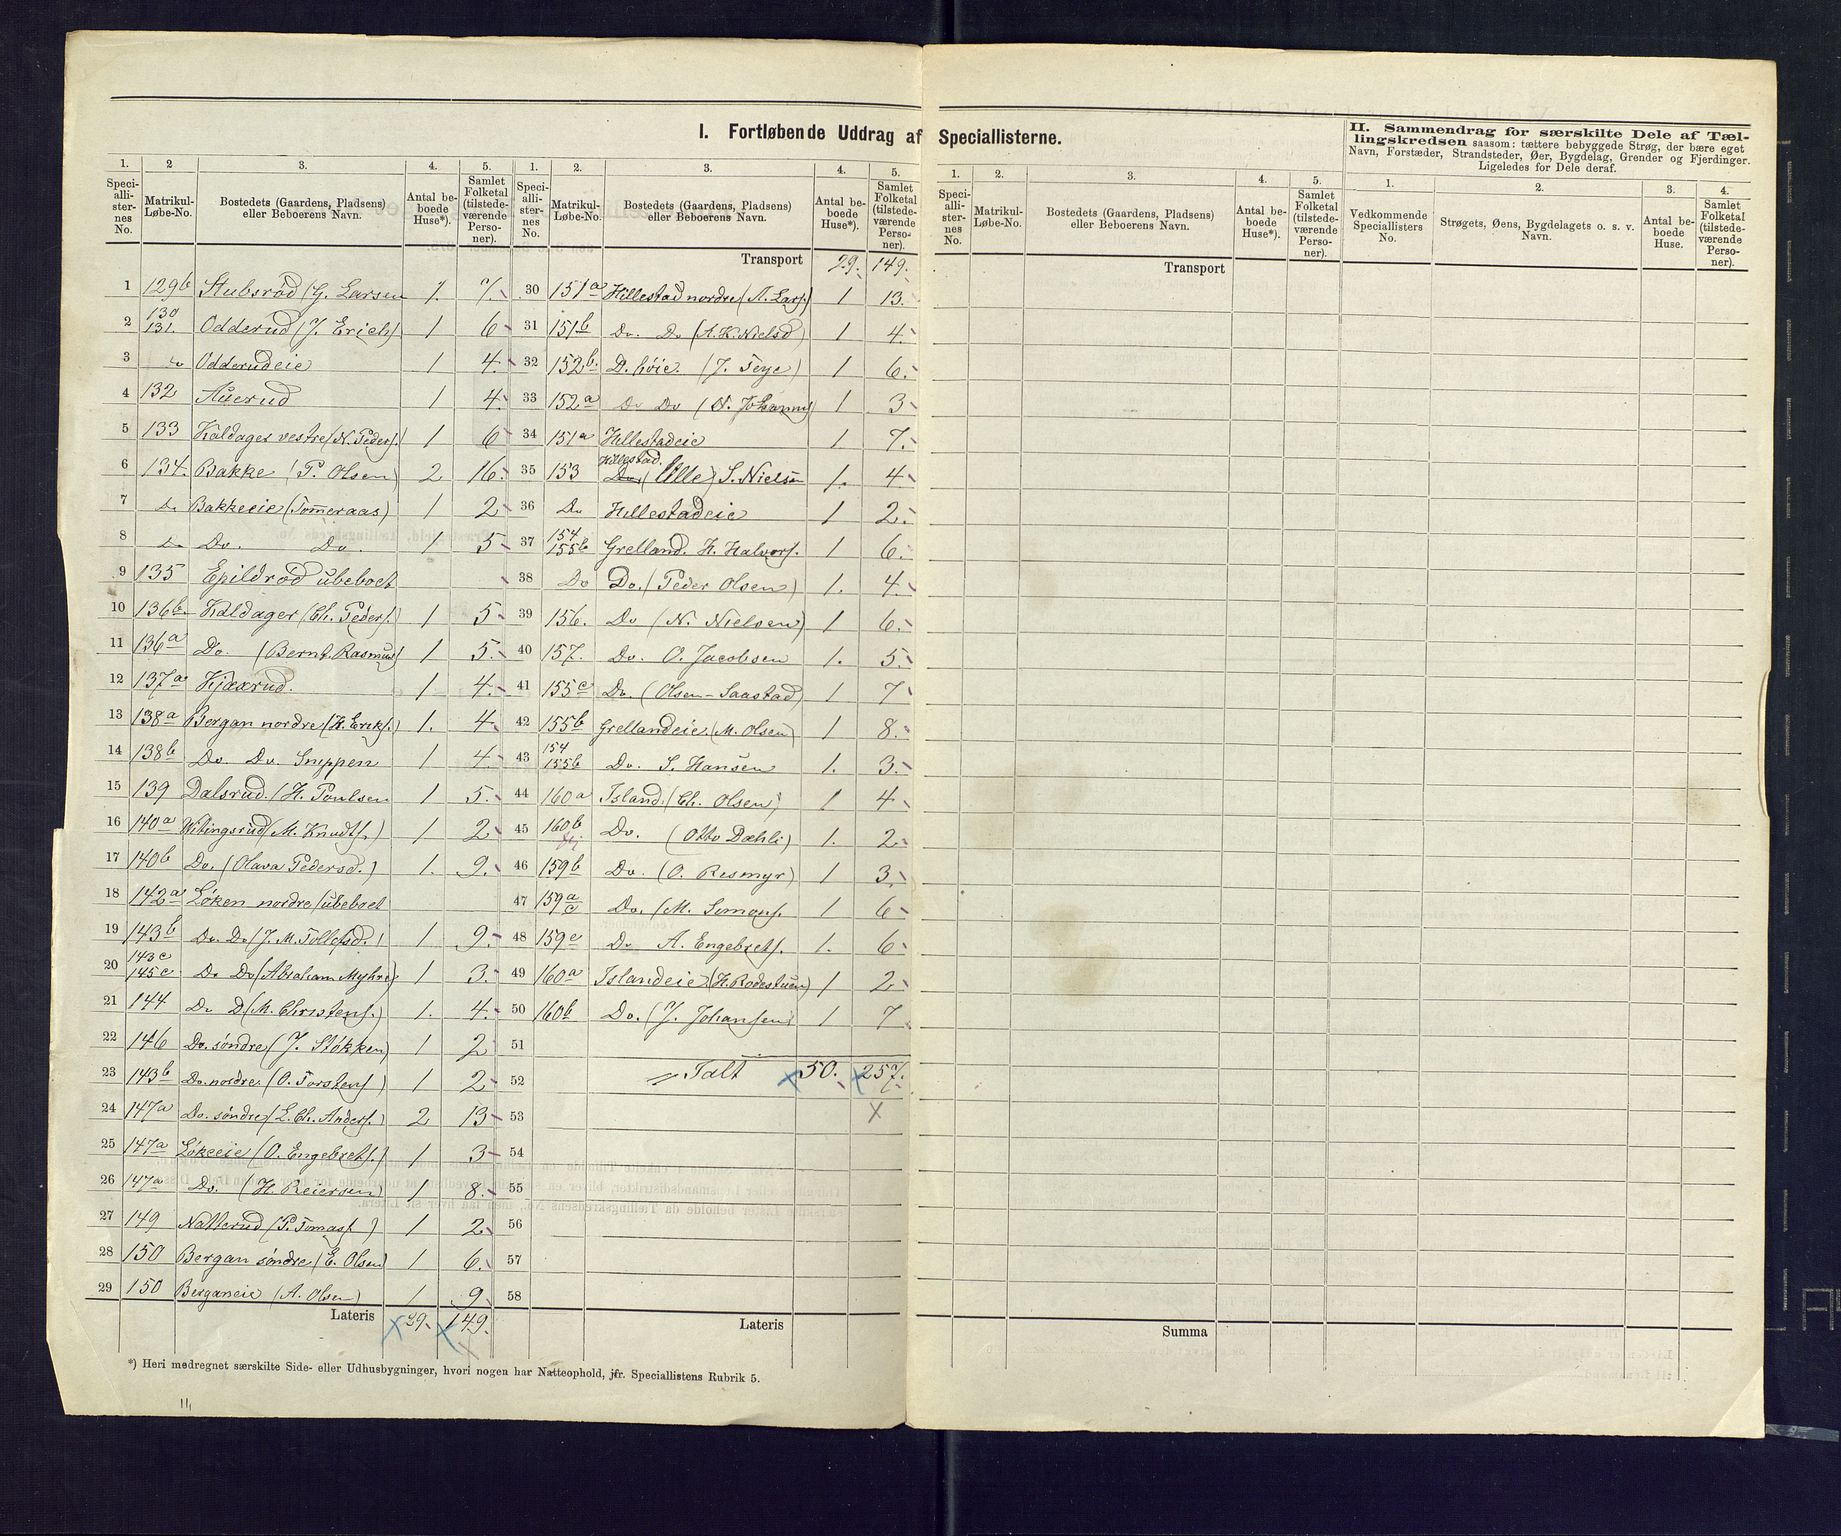 I. Fortløbende Uddrag af Speciallisterne.
1. 2 3. 4. 5.
Speciallisternes No. Matrikul-Løbe-No. Bostedets (Gaardens, Pladsens) eller Beboerens Navn. Antal beboede Huse*). Samlet Folketal (tilstedeværende Personer).
1 129b Stubsrød (G. Larsen 1. 7
2 130 131. Odderud (J. Ericks) 1 6
3 do Odderudeie 1 4.
4 132 Auerud 1 4.
5 133 Kaldager vestre (N. Peders.) 1 6
6 134. Bakke (P. Olsen) 2 16.
7 Do Bakkeeie (Tømeraas) 1 2
8 Do Do. Do. 1 5
9 135 Epildrød ubeboet
10 136b. Kaldager (Ch. Peders.) 1 5
11 136a Do. (Bernt. Rasmus) 1 5.
12 137a Kjæxrud. 1 4.
13 138a Bergan nordre (K. Eriks.) 1. 4
14 138b Do. Do. Snippen 1 4.
15 139 Dalsrud. (H. Poulsen 1 5.
16 140a Witingsrud (M. Knudts.) 1 2
17 140b Do. (Olava Pedersd.) 1. 9.
18 142a Løken nordre (ubeboet
19 143b Do. Do (J. M. Tollefsd.) 1 9.
20 143c 145c Do Do (Abraham Myhre) 1 3.
21 144 Do D (M. Christens.) 1. 4.
22 146 Do. søndre (J. Støkken) 1 2
23 143b Do. nordre. (O. Torstens) 1 2
24 147a Do. søndre (L. Ch. Anders.) 2 13
25 147a Løkeeie (O. Engebrets.) 1 3
26 147a Do. (H. Reiersen) 1 8.
27 149 Natterud (P. Tomass) 1 2.
28 150 Bergan søndre (E. Olsen) 1 6.
29 150 Berganeie (A. Olsen) 1 9
Lateris 29. 149.
*) Heri medregnet særskilte Side- eller Udhusbygninger, hvori nogen har Natteophold, jfr. Speciallistens Rubrik 5.
1. 2. 3. 4. 5.
Speciallisternes No. Matrikul-Løbe-No. Bostedets (Gaardens, Pladsens) eller Beboerens Navn. Antal beboede Huse*). Samlet Folketal (tilstedeværende Personer).
Transport 29. 149.
30 151a Hillestad nordre (A. Lars.) 1 13.
31 151b Do. Do (A. K. Nielsd) 1 4.
32 152b. D. høie. (J. Teye) 1 6.
33 152a Do Do (N. Johanns) 1 3
34 151a Hillestadeie 1 7.
35 153 Hillestad. Do. (lille) S. Nielsen 1. 4
36 Do Hillestadeie 1 2.
37 154 155b Grelland. H. Halvors. 1 6.
38 Do Do. (Peder Olsen) 1. 4.
39 156. Do (N. Nielsen) 1 6.
40 157. Do. O. Jacobsen 1. 5.
41 155c Do. (Olsen-Saastad) 1 7
42 155b Grellandeie. (M. Olsen) 1 8.
43 154 155b Do. S. Hansen 1. 3.
44 160a Island. (Ch. Olsen) 1 4
45 160b Do. (Otto Dæhli) 1. 2
46 159b Do. (O. Resmyr) 1 3.
47 159a c Do. (M. Simons. 1 6
48 159e Do A. Engebrets. 1. 6
49 160a Islandeie (H. Rodestuen) 1 2
50 160b Do. (J. Johansen) 1 7
51
Ialt 50. 257.
52
53
54
55
56
57
58
Lateris
1. 2. 3. 4. 5.
Speciallisternes No. Matrikul-Løbe-No. Bostedets (Gaardens, Pladsens) eller Beboerens Navn. Antal beboede Huse*). Samlet Folketal (tilstedeværende Personer).
Transport
Summa
II. Sammendrag for særskilte Dele af Tællingskredsen saasom: tættere bebyggede Strøg, der bære eget Navn, Forstæder, Strandsteder, Øer, Bygdelag, Grender og Fjerdinger. Ligeledes for Dele deraf.
1. 2. 3. 4.
Vedkommende Speciallisters No. Strøgets, Øens, Bygdelagets o. s. v. Navn. Antal beboede Huse. Samlet Folketal (tilstedeværende Personer).